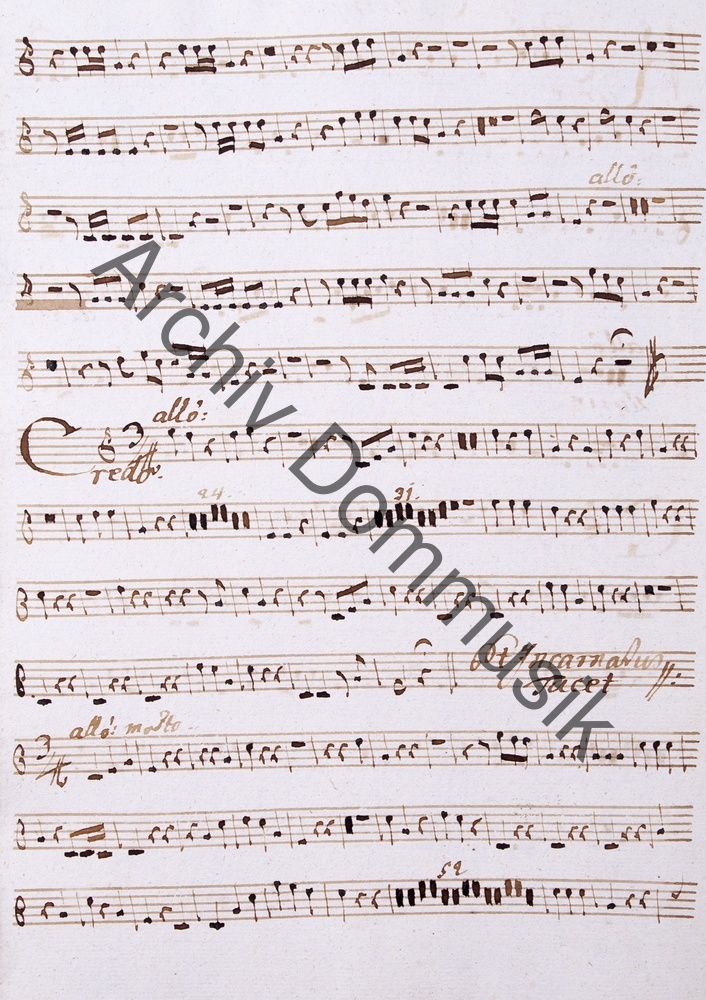 allô:
allô:
Credo.
24.
31.
Et Incarnatus
Tacet
allô: molto
52
Archiv Dommusik